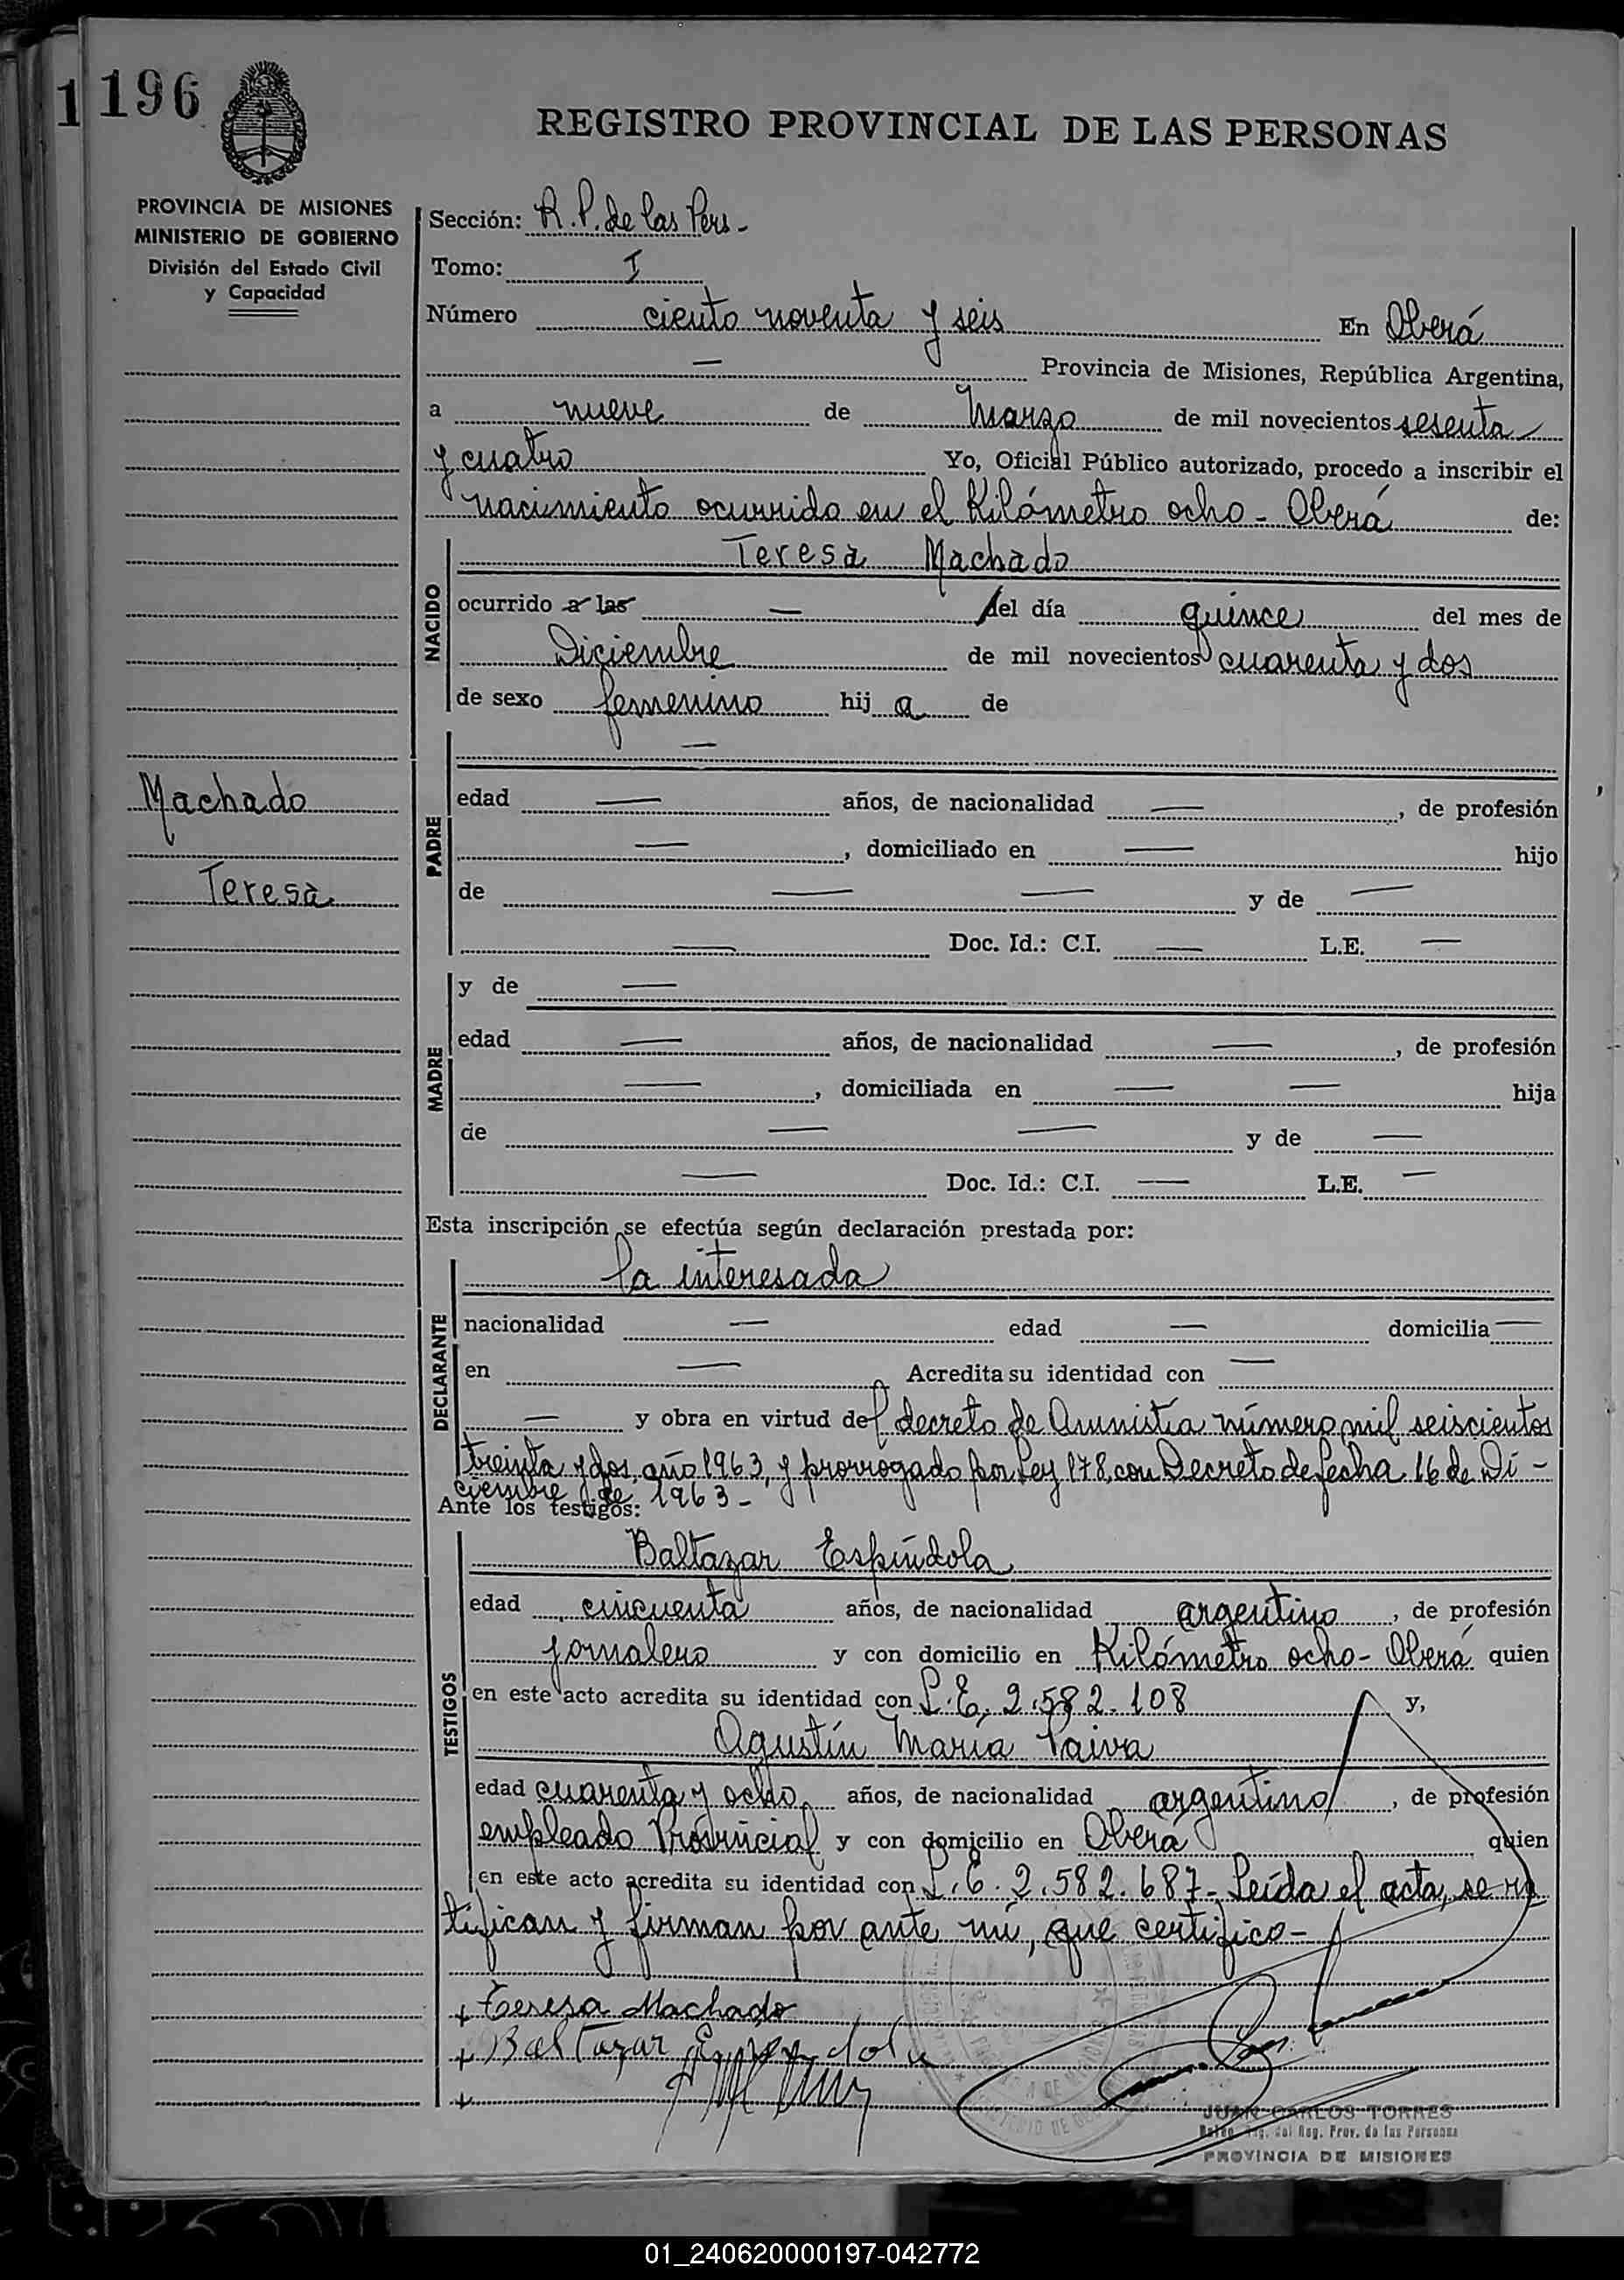 1 196
REGISTRO PROVINCIAL DE LAS PERSONAS
PROVINCIA DE MISIONES
MINISTERIO DE GOBIERNO
División del Estado Civil
y Capacidad
Sección: R.P. de las Pers -
Tomo: I
Número ciento noventa y seis En Oberá
— Provincia de Misiones, República Argentina,
a nueve de Marzo de mil novecientos sesenta
y cuatro Yo, Oficial Público autorizado, procedo a inscribir el
nacimiento ocurrido en el Kilómetro ocho - Oberá de:
Teresa Machado
NACIDO
ocurrido a las — del día quince del mes de
Diciembre de mil novecientos cuarenta y dos
de sexo femenino hij a de
—
Machado
Teresa
PADRE
edad — años, de nacionalidad —, de profesión
—, domiciliado en — hijo
de — — y de —
— Doc. Id.: C.I. — L.E. —
MADRE
y de —
edad — años, de nacionalidad —, de profesión
—, domiciliada en — — hija
de — — y de —
— Doc. Id.: C.I. — L.E. —
Esta inscripción se efectúa según declaración prestada por:
DECLARANTE
la interesada
nacionalidad — edad — domicilia —
en — Acredita su identidad con —
— y obra en virtud del decreto de Amnistía número mil seiscientos
treinta y dos, año 1963, y prorrogado por Ley 178, con Decreto de fecha 16 de Di -
ciembre de 1963 -
Ante los testigos:
TESTIGOS
Baltazar Espíndola
edad cincuenta años, de nacionalidad argentino, de profesión
jornalero y con domicilio en Kilómetro ocho - Oberá quien
en este acto acredita su identidad con L.E. 2.582.108 y,
Agustín María Paiva
edad cuarenta y ocho años, de nacionalidad argentino, de profesión
empleado Provincial y con domicilio en Oberá quien
en este acto acredita su identidad con L.E. 2.582.687 - Leída el acta, se ra
tifican y firman por ante mí, que certifico -
+ Teresa Machado
+ Baltazar Espindola
+
JUAN CARLOS TORRES
del Reg. Prov. de las Personas
PROVINCIA DE MISIONES
01_240620000197-042772